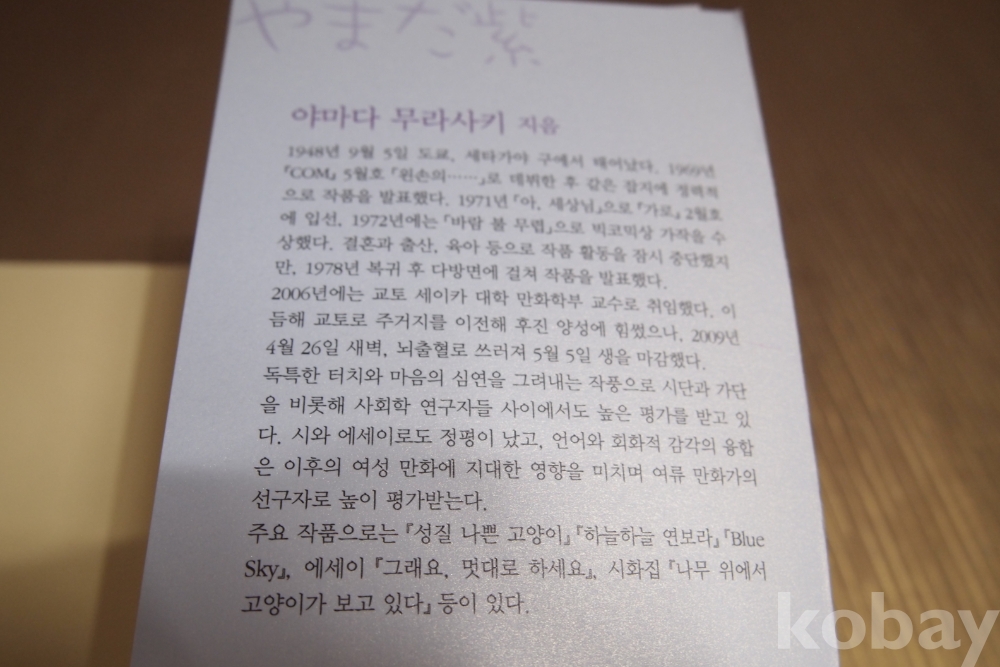 やまだ紫
야마다 무라사키 지음
1948년 9월 5일 도쿄, 세타가야 구에서 태어났다. 1969년
『COM』 5월호 「왼손의……」로 데뷔한 후 같은 잡지에 정력적
으로 작품을 발표했다. 1971년 「아, 세상님」으로 『가로』 2월호
에 입선, 1972년에는 「바람 불 무렵」으로 빅코믹상 가작을 수
상했다. 결혼과 출산, 육아 등으로 작품 활동을 잠시 중단했지
만, 1978년 복귀 후 다방면에 걸쳐 작품을 발표했다.
2006년에는 교토 세이카 대학 만화학부 교수로 취임했다. 이
듬해 교토로 주거지를 이전해 후진 양성에 힘썼으나, 2009년
4월 26일 새벽, 뇌출혈로 쓰러져 5월 5일 생을 마감했다.
독특한 터치와 마음의 심연을 그려내는 작풍으로 시단과 가단
을 비롯해 사회학 연구자들 사이에서도 높은 평가를 받고 있
다. 시와 에세이로도 정평이 났고, 언어와 회화적 감각의 융합
은 이후의 여성 만화에 지대한 영향을 미치며 여류 만화가의
선구자로 높이 평가받는다.
주요 작품으로는 『성질 나쁜 고양이』 『하늘하늘 연보라』 『Blue
Sky』, 에세이 『그래요, 멋대로 하세요』, 시화집 『나무 위에서
고양이가 보고 있다』 등이 있다.
kobay